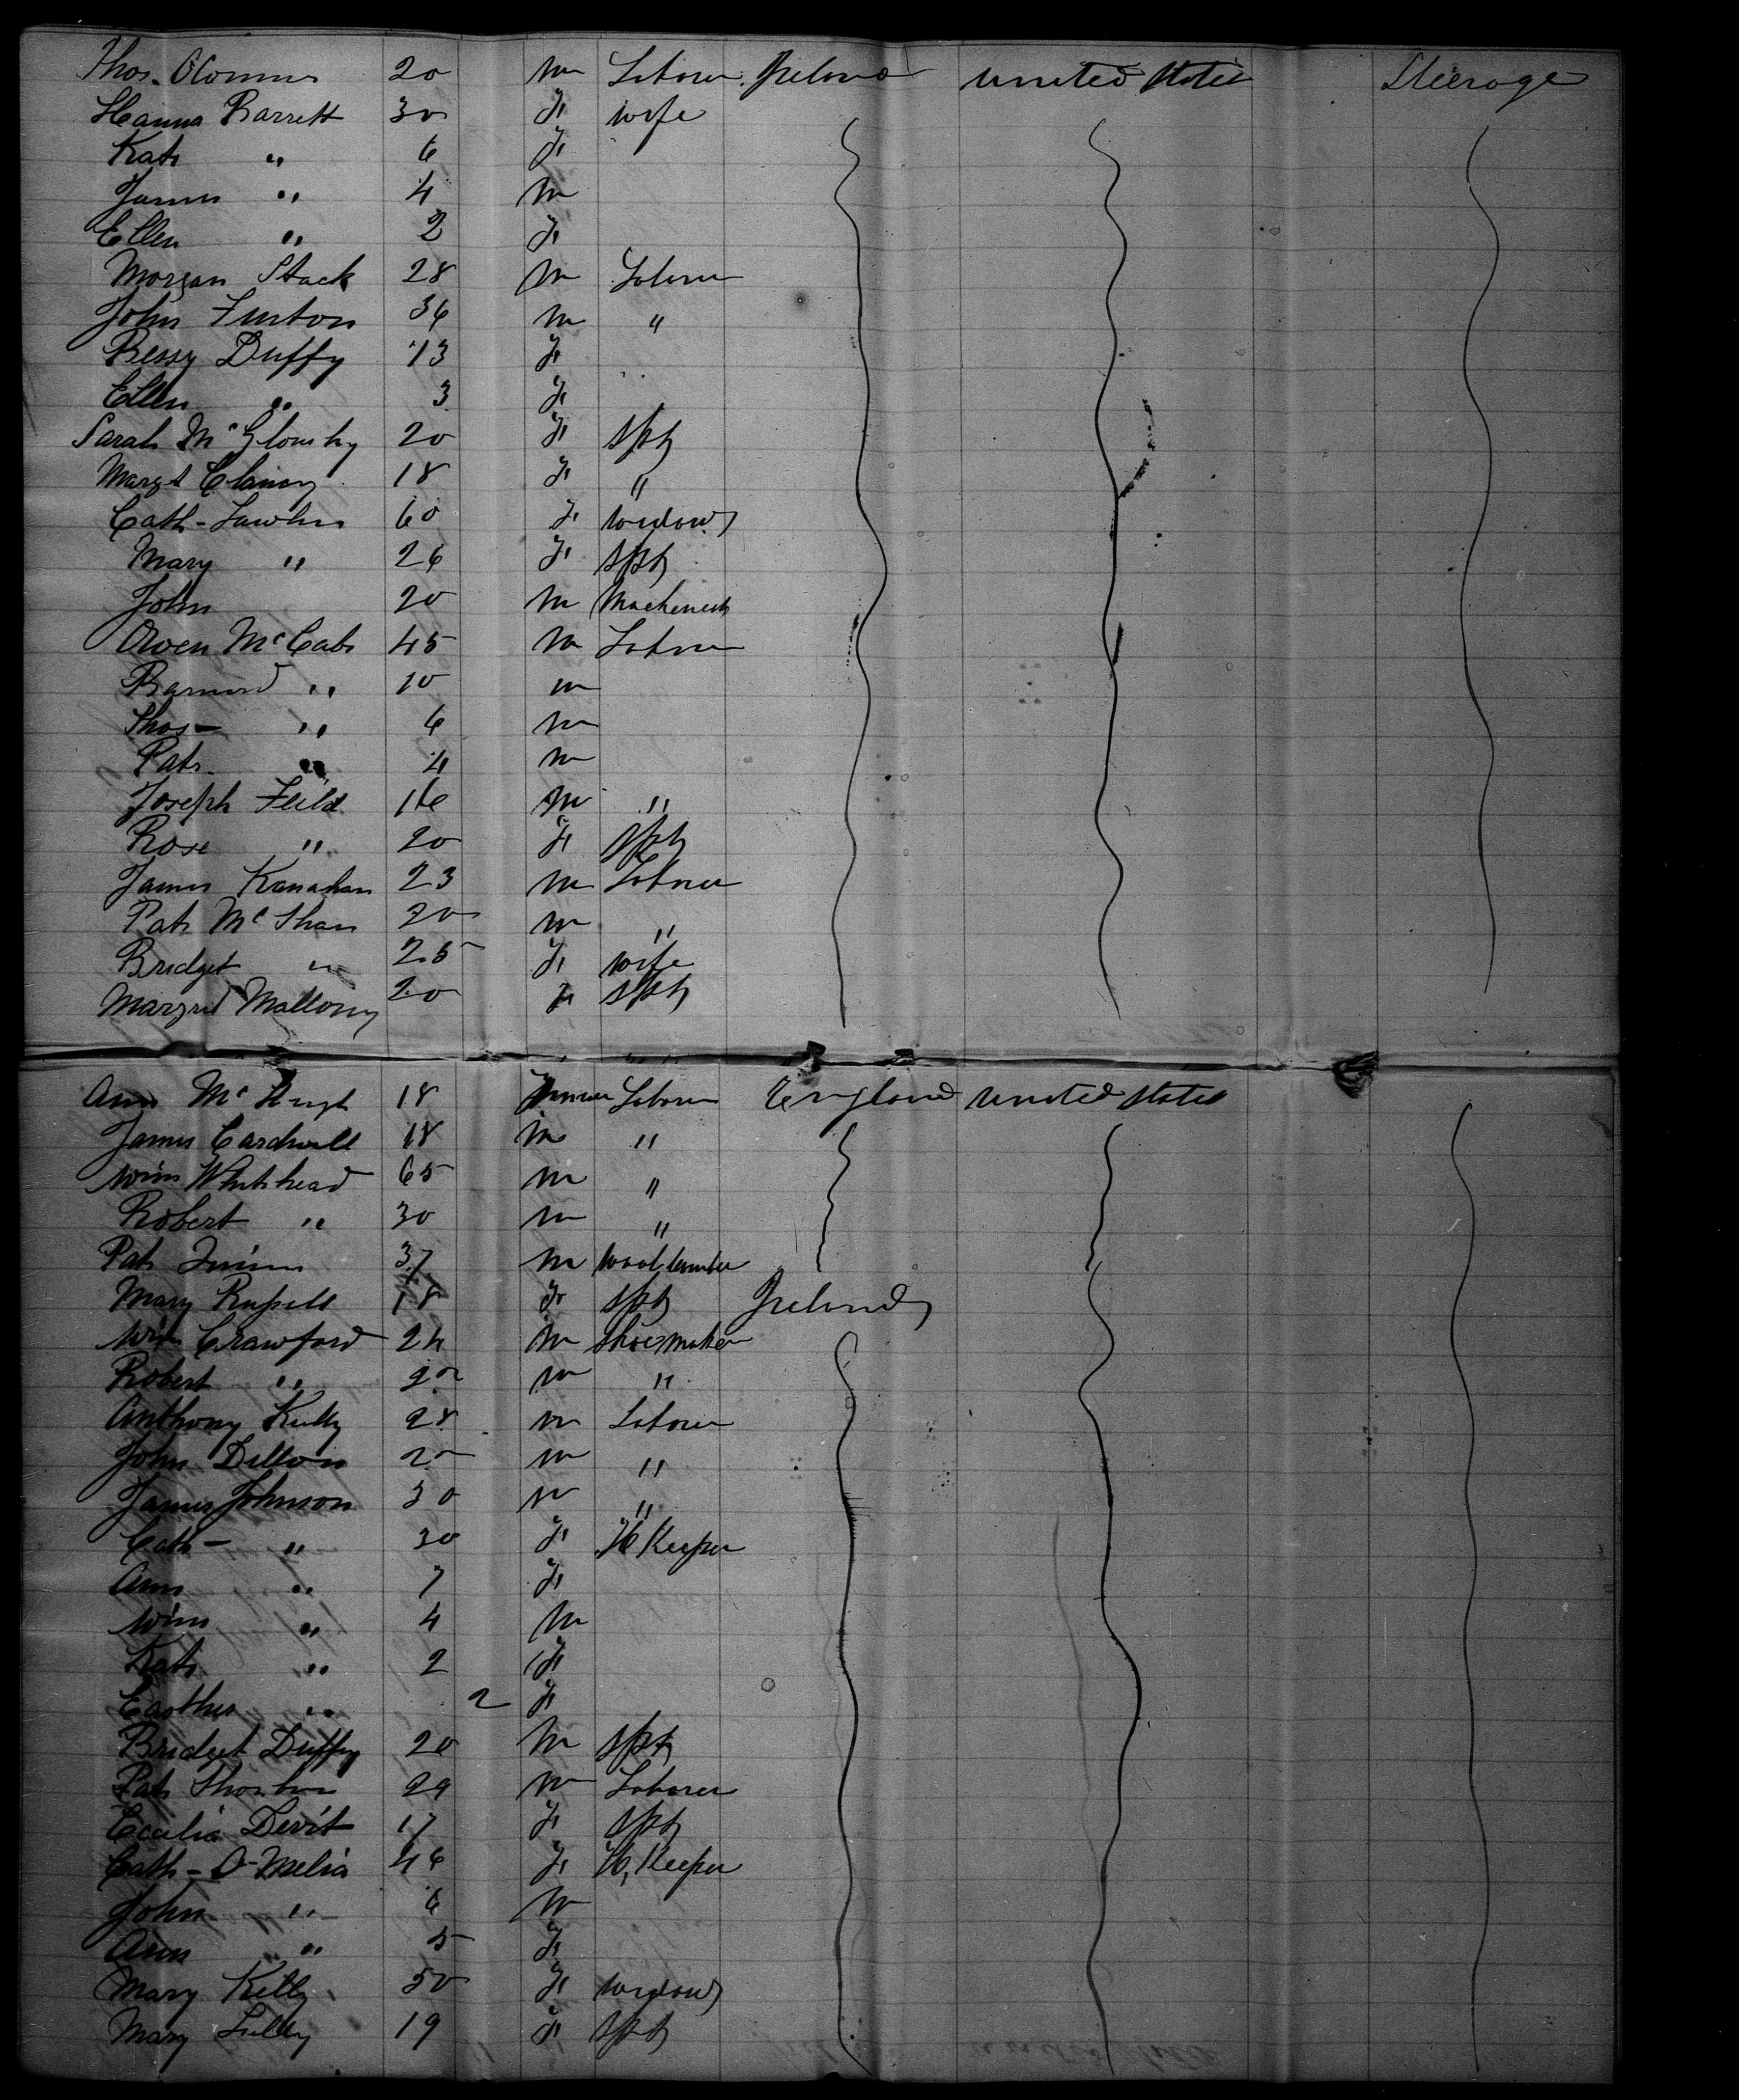 Thos. OConnor 20 m Laborer Ireland united States Steerage
Hanna Barrett 30 F wife
Kate " 6 F
James " 4 m
Ellen " 2 F
Morgan Stack 28 m Laborer
John Furton 36 m "
Bessy Duffy 13 F
Ellen " 3 F
Sarah Mc 20 F Spt
Margt Clancy 18 F "
Cath - Lawler 60 F widow
Mary " 26 F Spt
John 20 m
Owen McCabe 45 m Laborer
Barnard " 10 m
Thos - " 6 m
Pat. " 4 m
Joseph Feild 16 m "
Rose " 20 F Spt
James Kanahan 23 m Laborer
Pat Mc Shan 20 m "
Bridget " 25 F wife
Margret Mallony 20 F Spt
Ann Mc Hugh 18 Laborer England united States
James Cardwell 18 m "
Wm Whitehead 65 m "
Robert " 30 m "
Pat 37 m
Mary Russell 18 F Spt Ireland
Wm Crawford 24 m Shoemaker
Robert " m "
Anthony Kelly 28 m Laborer
John Dillon m "
James Johnson 30 m "
Cath - " 30 F H Keeper
Ann " 7 F
Wm " 4 m
Kate " 2 F
Easther " 2 F
Bridget Duffy 20 m Spt
Pat 29 m Laborer
Ecelia Devit 17 F Spt
Cath - O Melia 46 F H, Keeper
John " 6 m
Ann " 5 F
Mary Kelly 50 F widow
Mary Lully 19 F Spt